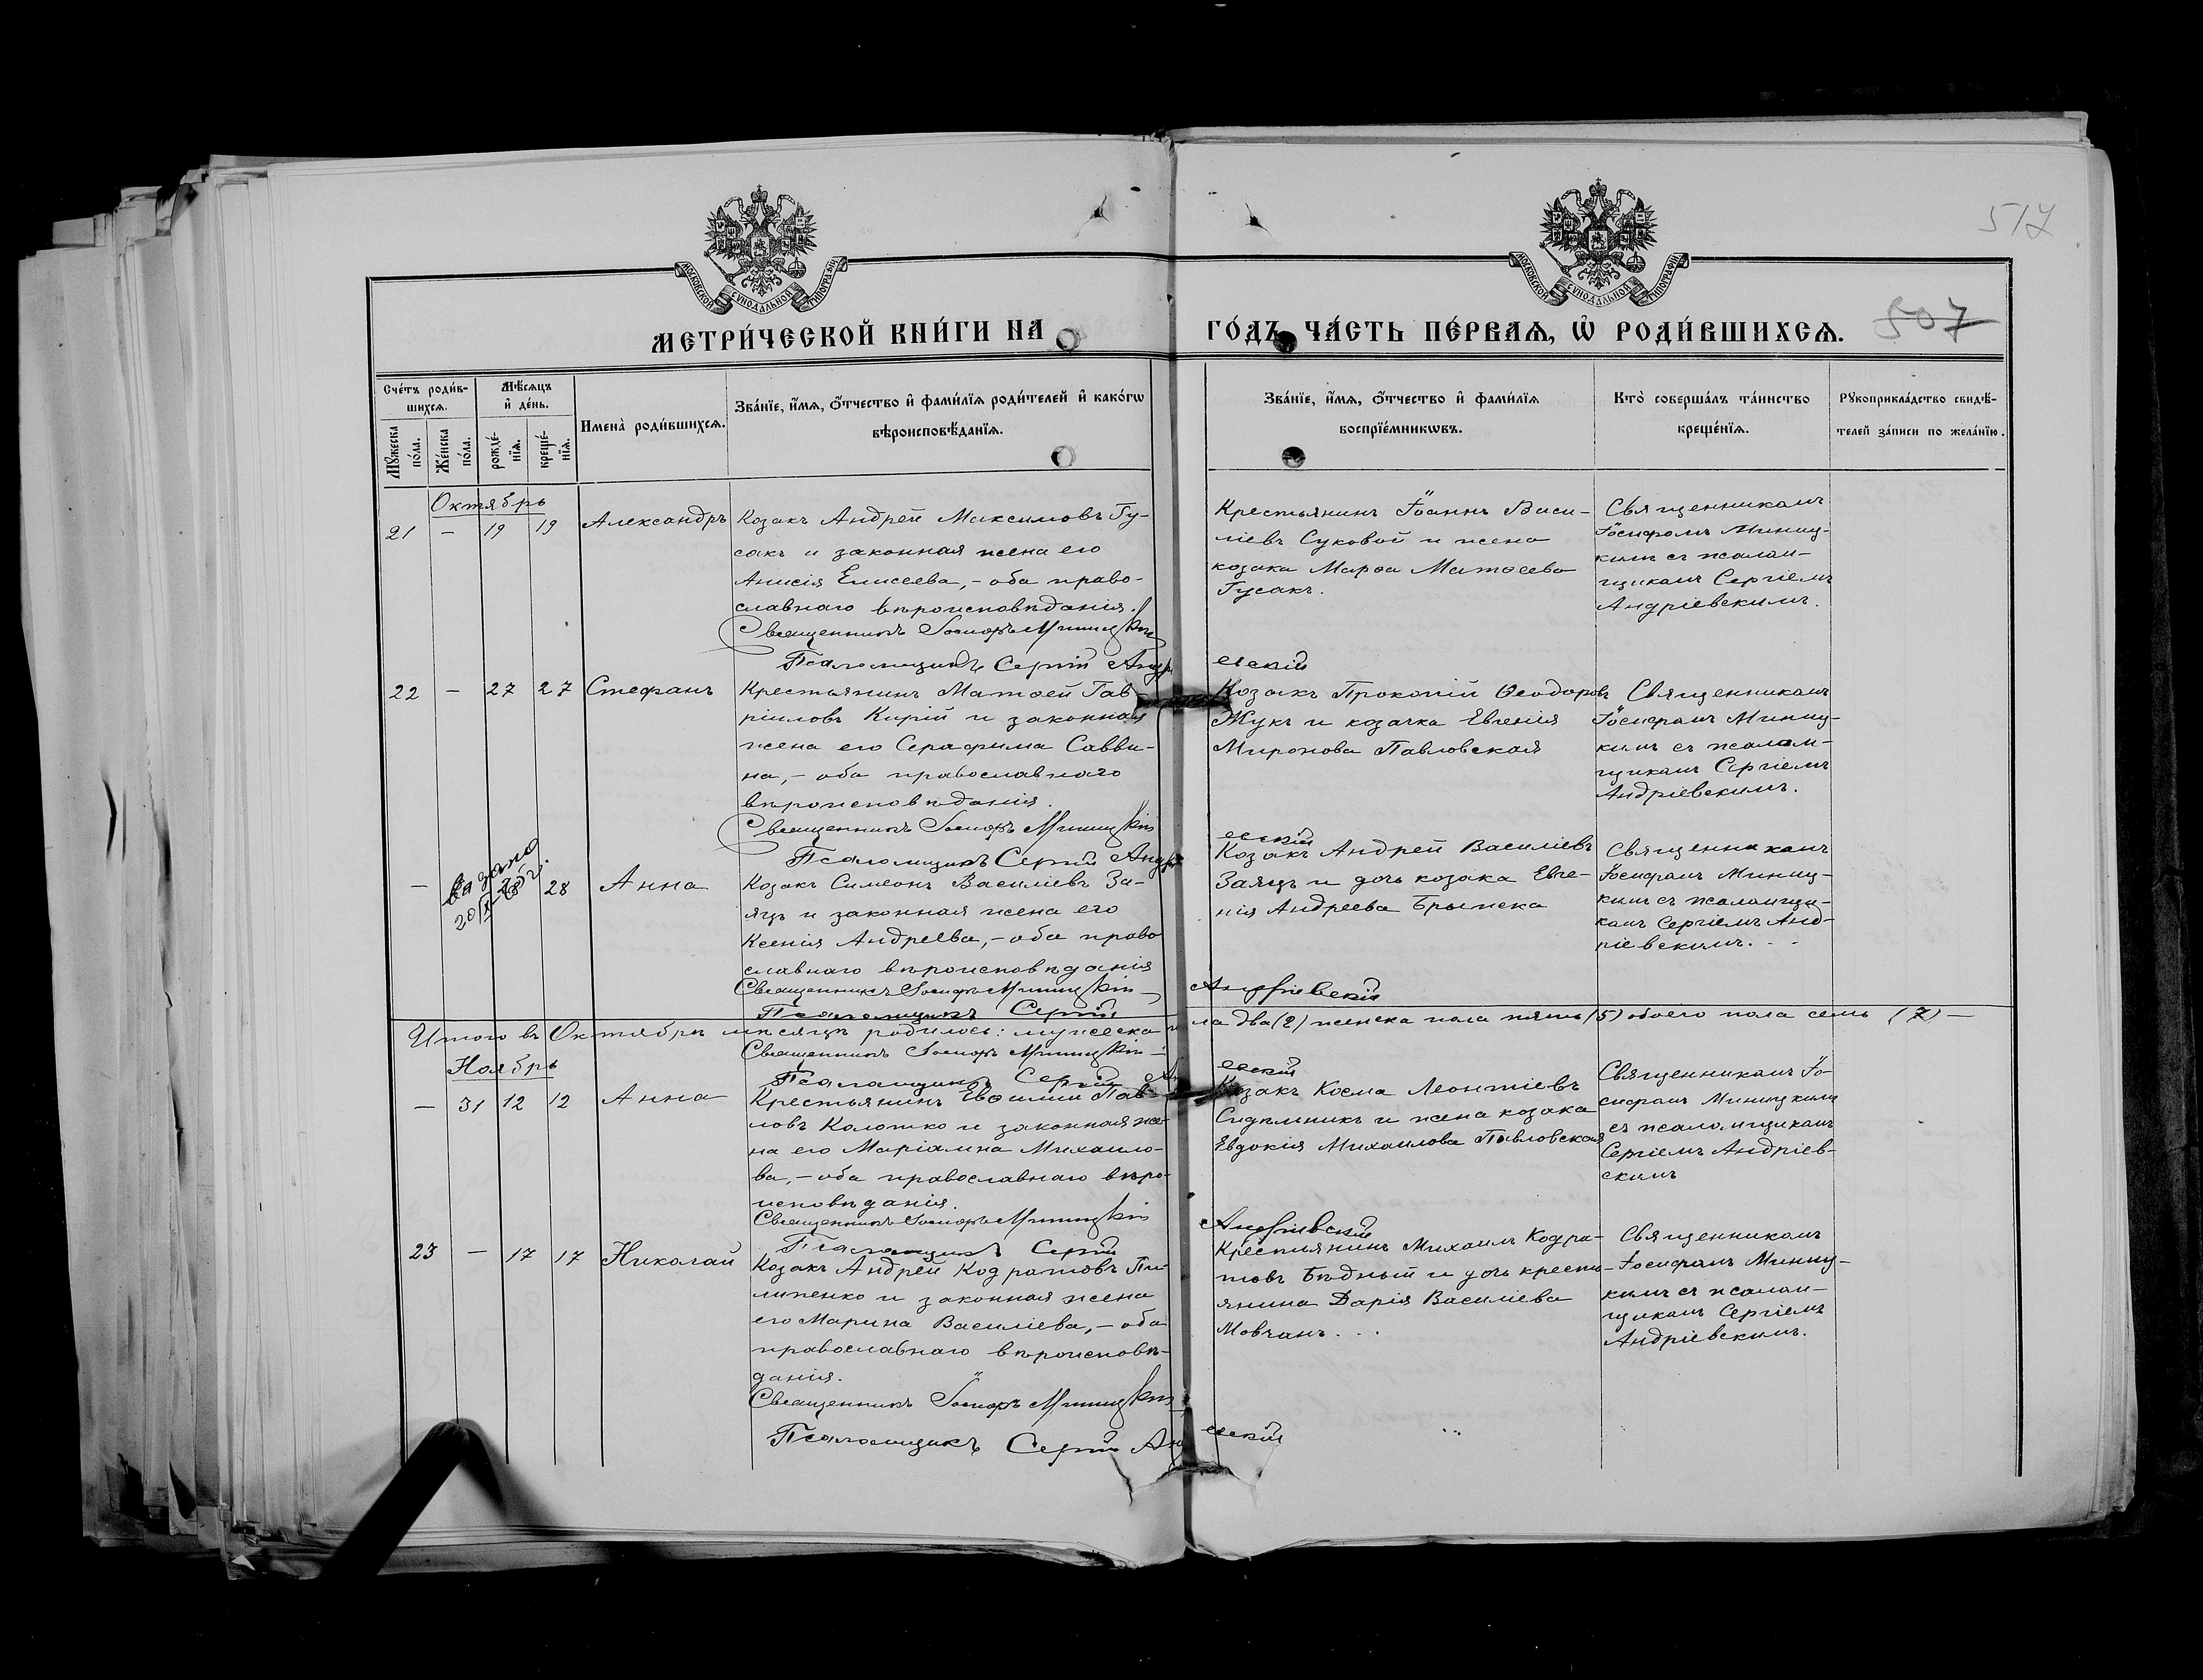 517
МОСКОВСКОЙ СѴНОДАЛЬНОЙ ТИПОГРАФІИ
МОСКОВСКОЙ СѴНОДАЛЬНОЙ ТИПОГРАФІИ
МЕТРИ́ЧЕСКОЙ КНИ́ГИ НА ГО́ДЪ ЧА́СТЬ ПЕ́РВАѦ, Ѡ РОДИ́ВШИХСѦ.
507
Сче́тъ роди́в-
шихсѧ.
Мѣ́сѧцъ
и҆ де́нь.
Мꙋ́жеска
по́ла.
Же́нска
по́ла.
рожде́-
нїѧ.
креще́-
нїѧ.
Имена̀ роди́вшихсѧ.
Зва́нїе, и҆́мѧ, ѻ҆́тчество и҆ фами́лїѧ роди́телей и҆ како́гѡ
вѣроисповѣ́данїѧ.
Зва́нїе, и҆́мѧ, ѻ҆́тчество и҆ фами́лїѧ
воспрїе́мникѡвъ.
Кто̀ соверша́лъ та́инство
креще́нїѧ.
Рꙋкоприкла́дство свидѣ́-
телей за́писи по жела́нїю.
Октябрь
21 – 19 19 Александръ
Козакъ Андрей Максимовъ Гу-
сакъ и законная жена его
Анисія Елисеева, – оба право-
славнаго вѣроисповѣданія.
Священникъ Іосифъ Миницкій
Псаломщикъ Сергій Андріевскій
Крестьянинъ Іоаннъ Васи-
ліевъ Суковой и жена
козака Марѳа Матѳеева
Гусакъ.
Священникомъ
Іосифомъ Миниц-
кимъ съ псалом-
щикомъ Сергіемъ
Андріевскимъ.
22 – 27 27 Стефанъ
Крестьянинъ Матѳей Гав-
ріиловъ Кирій и законная
жена его Серафима Савви-
на, – оба православнаго
вѣроисповѣданія.
Священникъ Іосифъ Миницкій
Псаломщикъ Сергій Андріевскій
Козакъ Прокопій Ѳеодоровъ
Жукъ и козачка Евгенія
Миронова Павловская
Священникомъ
Іосифомъ Миниц-
кимъ съ псалом-
щикомъ Сергіемъ
Андріевскимъ.
– 28 28 Анна
Козакъ Симеонъ Василіевъ За-
яцъ и законная жена его
Ксенія Андреева, – оба право
славнаго вѣроисповѣданія
Священникъ Іосифъ Миницкій
Псаломщикъ Сергій Андріевскій
Козакъ Андрей Василіевъ
Заяцъ и дочь козака Евге-
нія Андреева Брыжека
Священникомъ
Іосифомъ Миниц-
кимъ съ псаломщи-
комъ Сергіемъ Анд-
ріевскимъ.
Итого въ Октябрѣ мѣсяцѣ родилось: мужеска пола два (2) женска пола пять (5) обоего пола семь (7) –
Священникъ Іосифъ Миницкій
Псаломщикъ Сергій Андріевскій
Ноябрь
– 31 12 12 Анна
Крестьянинъ Евѳимій Пав-
ловъ Колотко и законная же-
на его Маріамна Михаило-
ва, – оба православнаго вѣро-
исповѣданія.
Священникъ Іосифъ Миницкій
Псаломщикъ Сергій Андріевскій
Козакъ Косма Леонтіевъ
Сидѣльникъ и жена козака
Евдокія Михаилова Павловская
Священникомъ Іо-
сифомъ Миницкимъ
съ псаломщикомъ
Сергіемъ Андріев-
скимъ
23 – 17 17 Николай
Козакъ Андрей Кодратовъ Пи-
липенко и законная жена
его Марина Василіева, – оба
православнаго вѣроисповѣ-
данія.
Священникъ Іосифъ Миницкій
Псаломщикъ Сергій Андріевскій
Крестьянинъ Михаилъ Кодра-
товъ Бѣдный и дочь кресть-
янина Дарія Василіева
Мовчанъ. . .
Священникомъ
Іосифомъ Миниц-
кимъ съ псалом-
щикомъ Сергіемъ
Андріевскимъ.